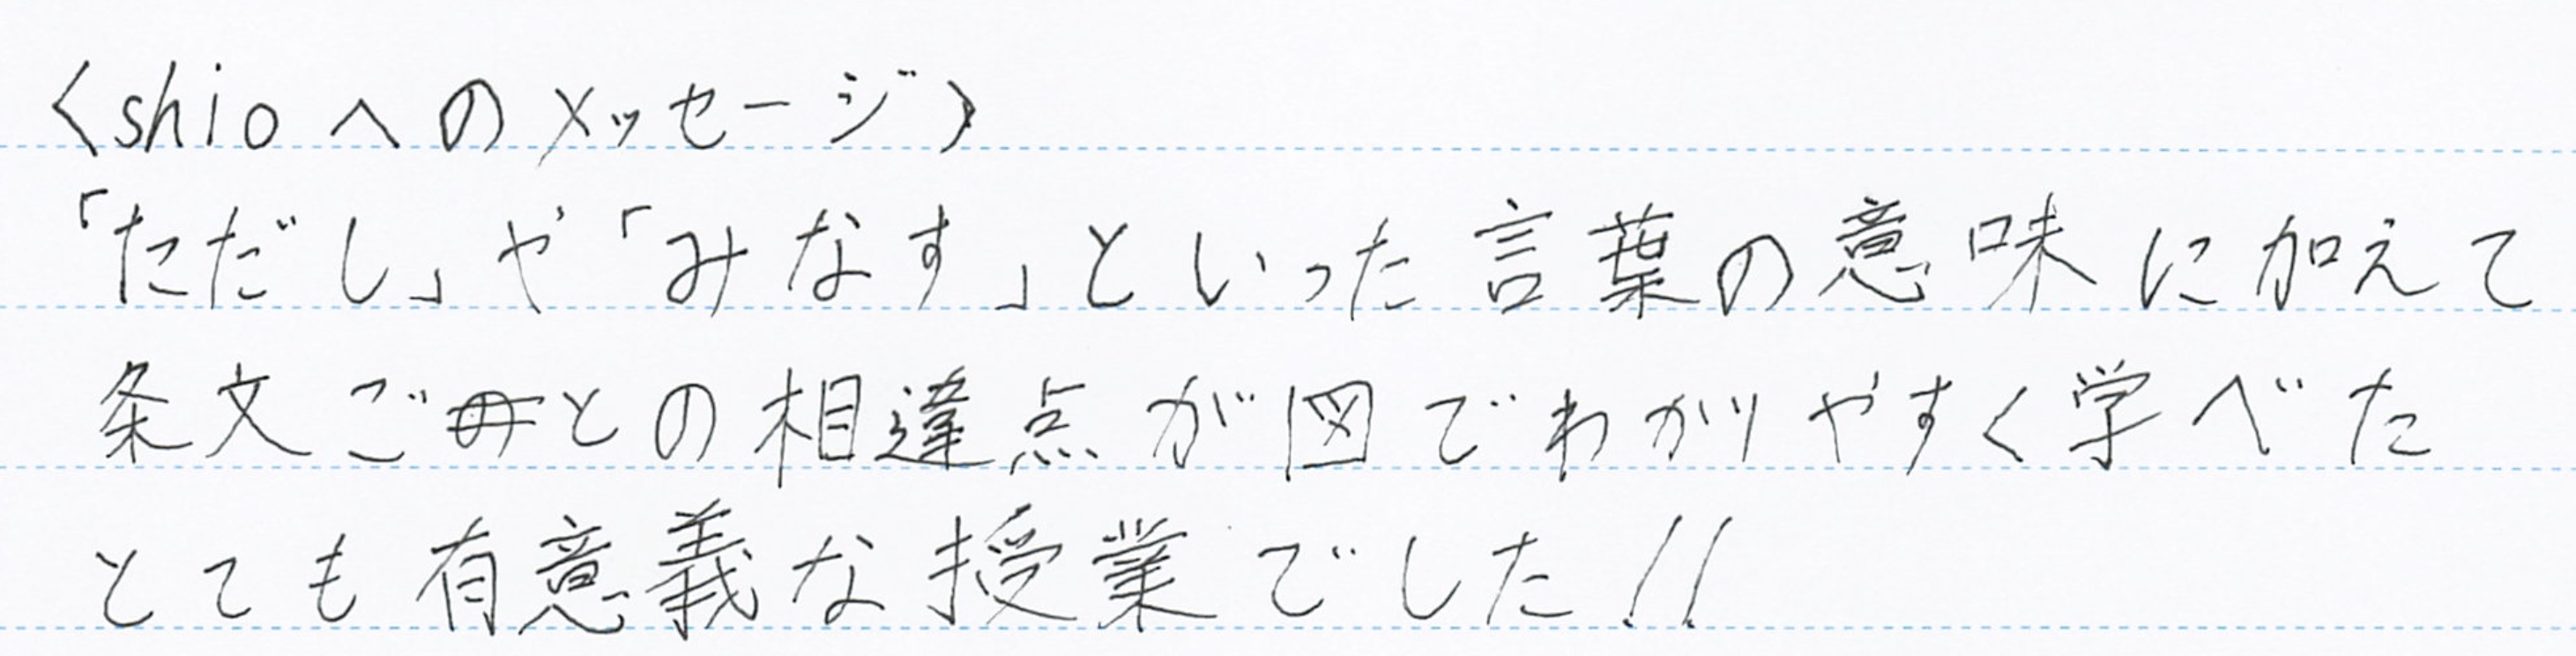 〈shioへのメッセージ〉
「ただし」や「みなす」といった言葉の意味に加えて
条文ごとの相違点が図でわかりやすく学べた
とても有意義な授業でした!!